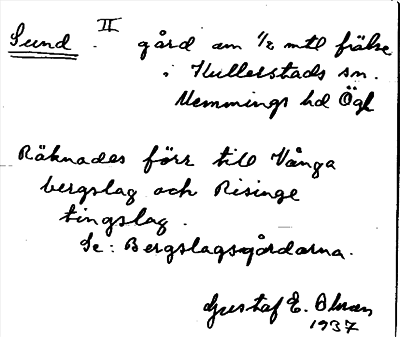 Sund. II gård om 1/2 mtl frälse
i Kullerstads sn.
Memmings hd Ögl
Räknades förr till Vånga
bergslag och Risinge
tingslag.
Se: Bergslagsgårdarna.
Gustaf E.
1937